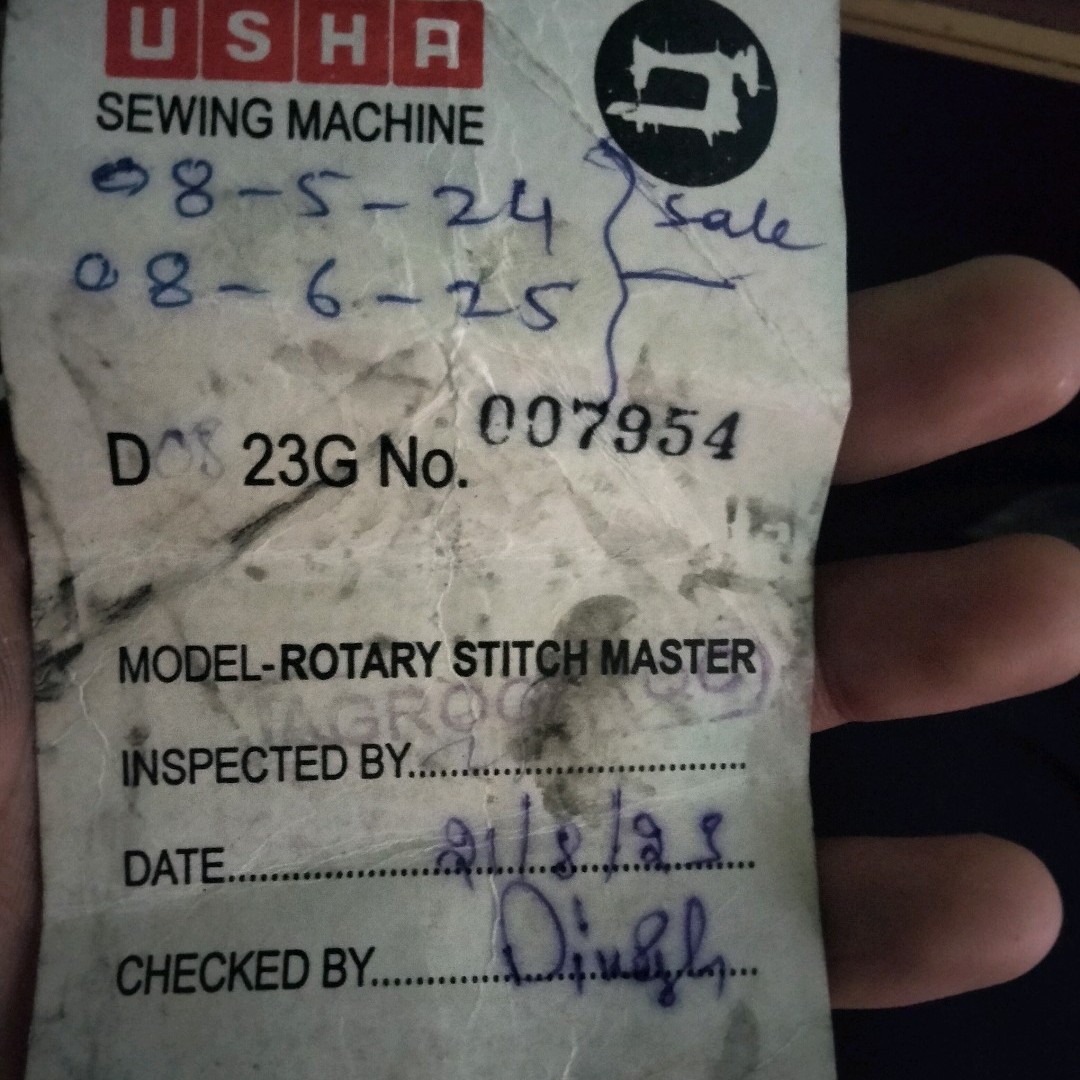 USHA
SEWING MACHINE
08-5-24
08-6-25
sale
D 08 23G No. 007954
MODEL-ROTARY STITCH MASTER
INSPECTED BY..............................
DATE..............................
CHECKED BY..............................